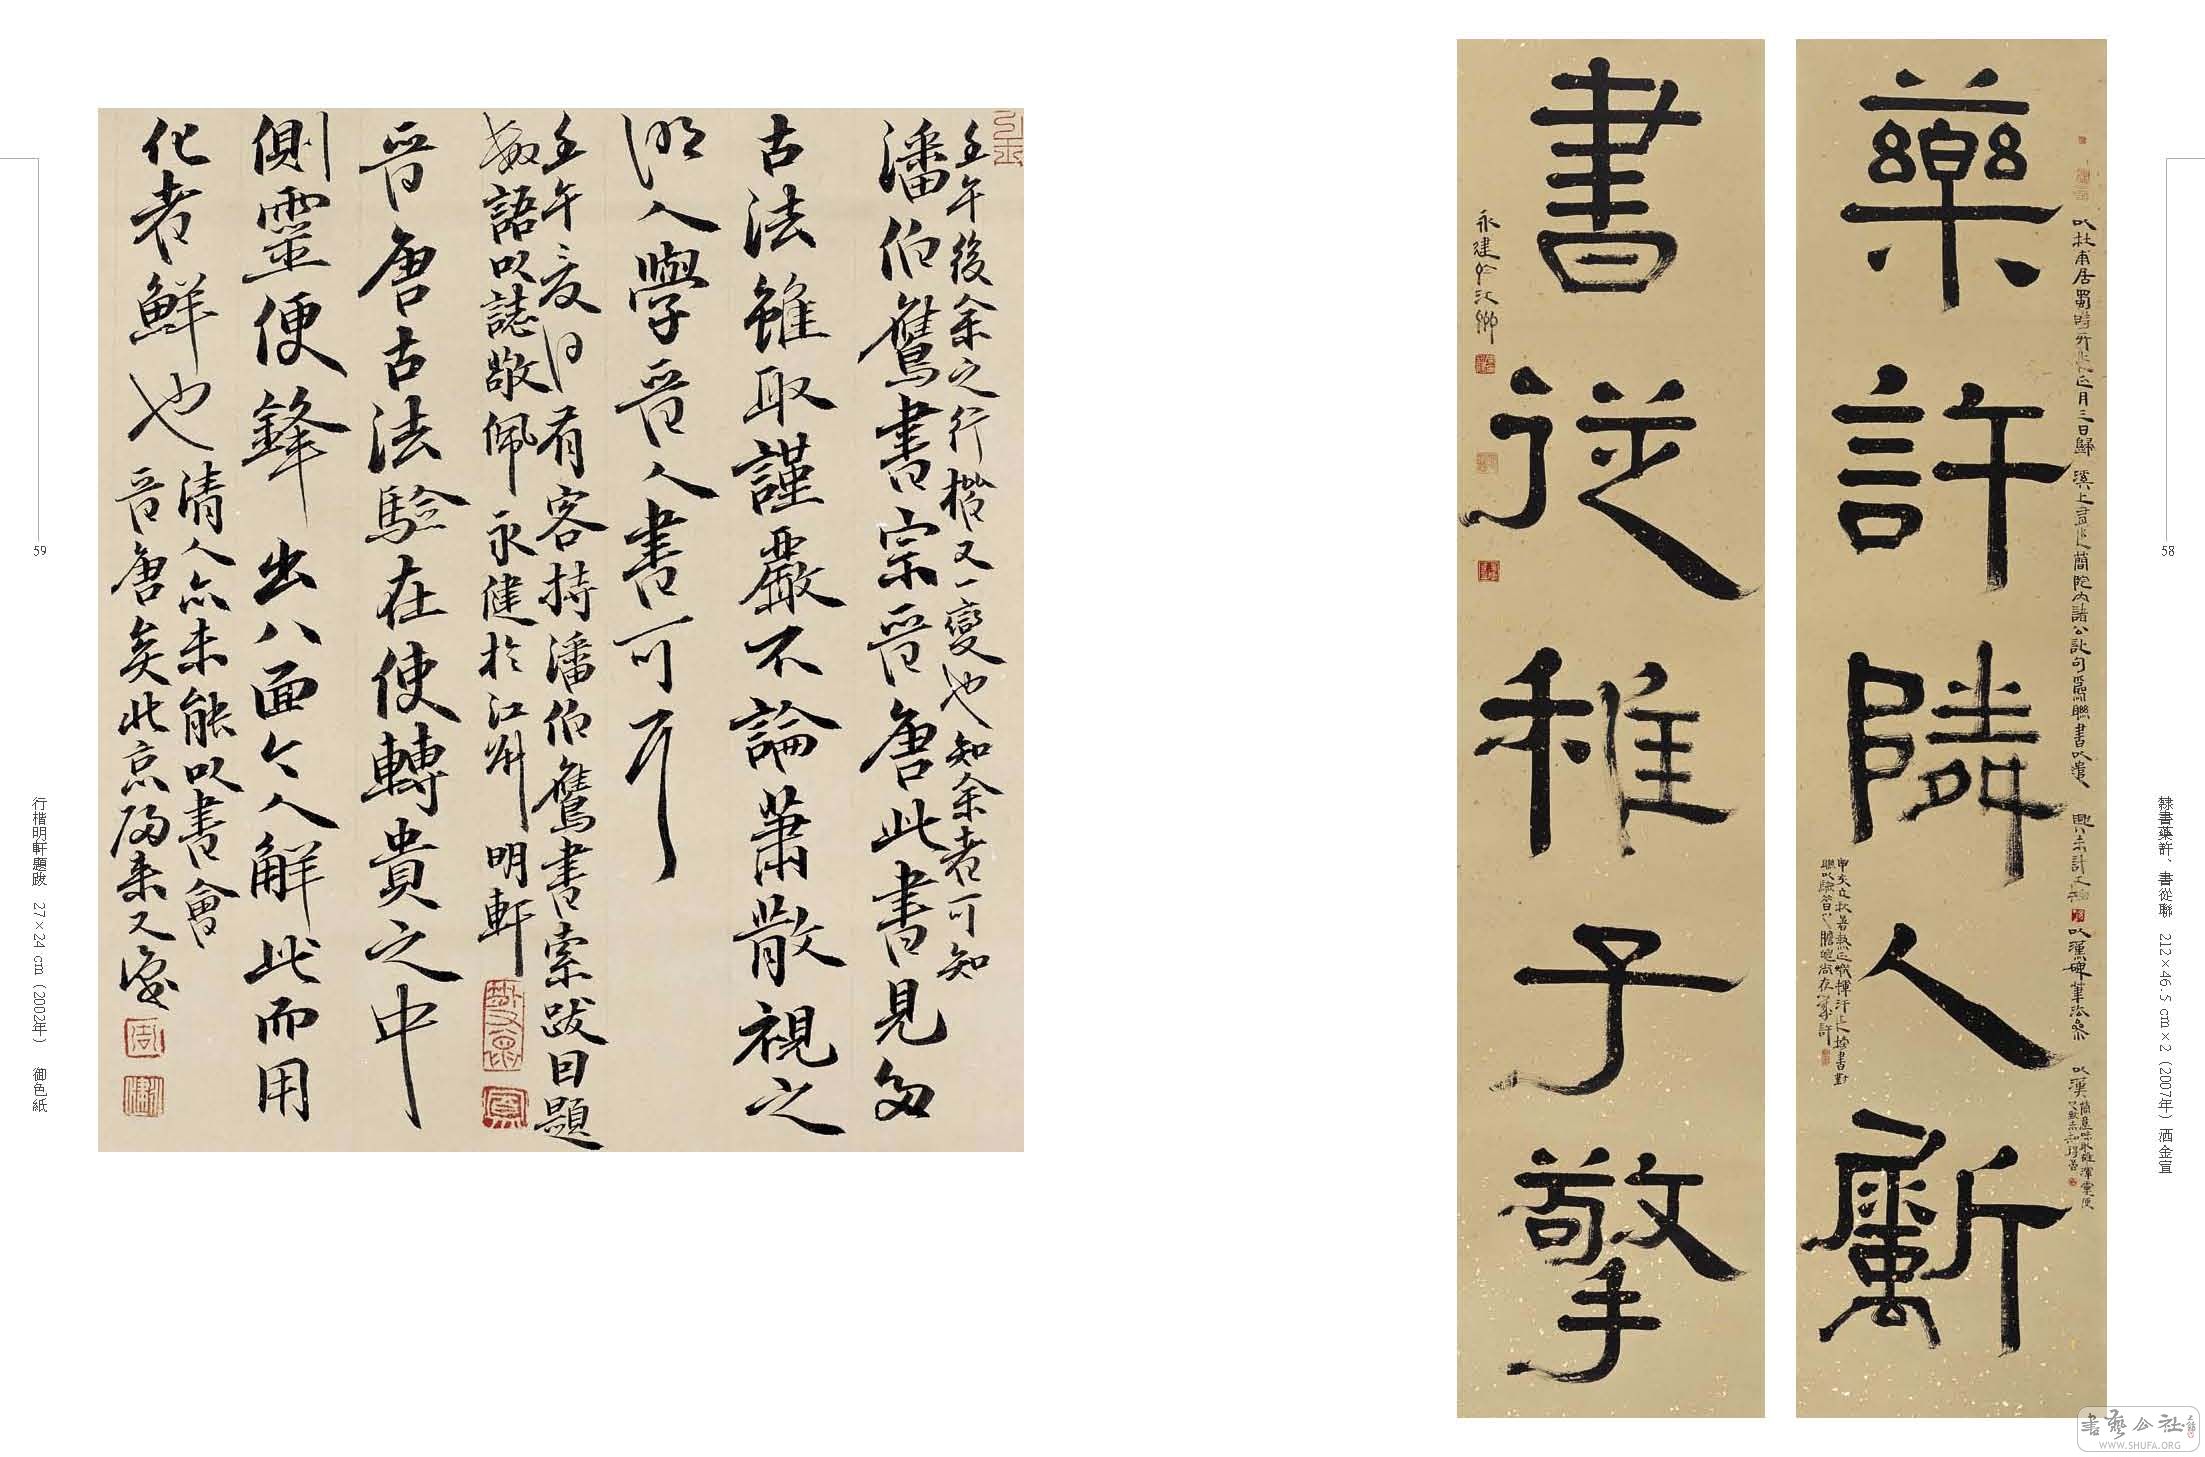 藥許隣人斸
書從稚子擎
以杜甫居蜀時所作正月三日歸溪上有作簡院內諸公詩句爲聯書以遣興未計工拙
以漢碑筆法參以漢簡意味取雄渾靈便
永建於江鄉
58
隸書藥許、書從聯 212×46.5 cm×2（2007年）洒金宣
壬午後余之行楷又一變也知余者可知
潘伯鷹書宗晉唐此書見多
古法雖取謹嚴不論蕭散視之
明人學晉人書可可耳
壬午夏日有客持潘伯鷹書索跋因題
數語以誌敬佩永健於江州明軒
晉唐古法驗在使轉貴之中
側靈便鋒出八面今人解此而用
化者鮮也
清人亦未能以書會
晉唐矣此京歸來又識
59
行楷明軒題跋 27×24 cm（2002年） 御色紙
書藝公社
WWW.SHUFA.ORG